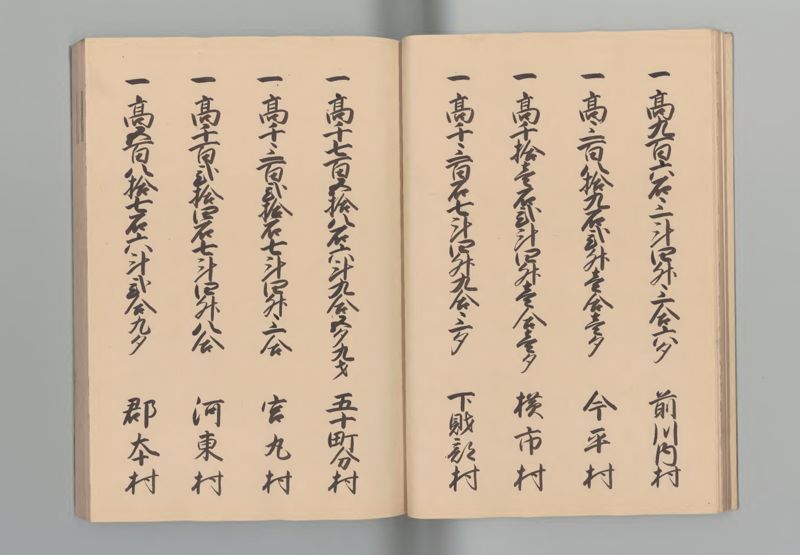 一 高九百六石三斗四升三合六夕 前川内村
一 高三百八拾九石弐升壱合壱夕 今平村
一 高千拾壱石弐斗四升壱合壱夕 横市村
一 高千三百石七斗四升九合三夕 下財部村
一 高千七百五拾八石六斗九合五夕九才 五十町分村
一 高千三百弐拾石七斗四升三合 宮丸村
一 高千百弐拾四石七斗四升八合 河東村
一 高五百八拾七石六斗弐合九夕 郡本村